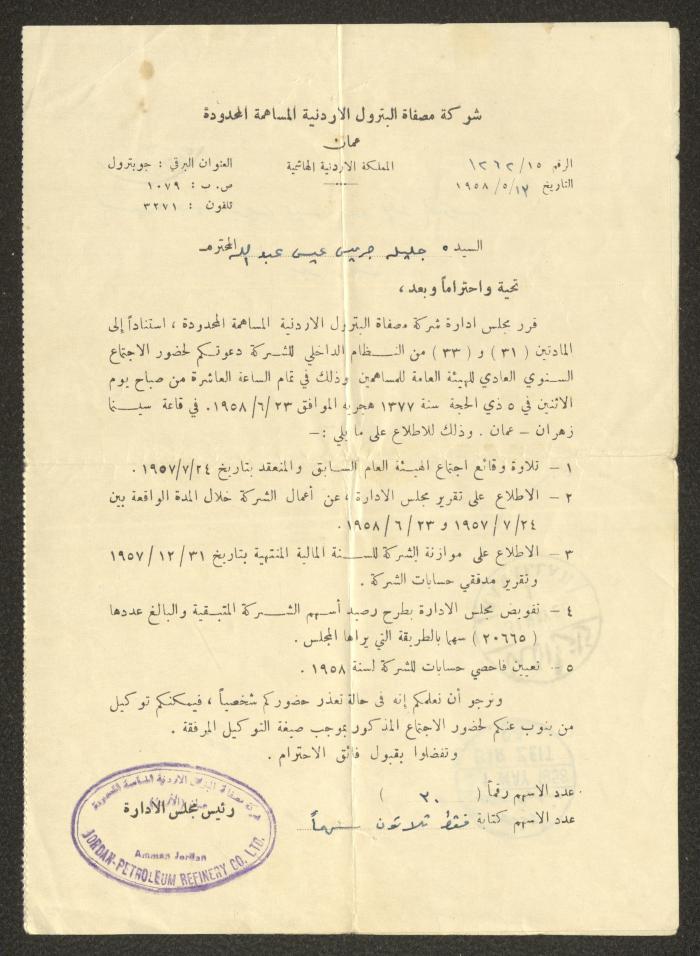 شركة مصفاة البترول الاردنية المساهمة المحدودة
عمان
الرقم ١٢٦٢/١٥
المملكة الاردنية الهاشمية
العنوان البرقي : جوبترول
التاريخ ١٩٥٨/٥/١٢
ص . ب : ١٠٧٩
تلفون : ٣٢٧١
السيده جليله جريس عيسى عبدالله المحترم
تحية واحتراماً وبعد ،
قرر مجلس ادارة شركة مصفاة البترول الاردنية المساهمة المحدودة ، استناداً إلى
المادتين ( ٣١ ) و ( ٣٣ ) من النظام الداخلي للشركة دعوتكم لحضور الاجتماع
السنوي العادي للهيئة العامة للمساهمين وذلك في تمام الساعة العاشرة من صباح يوم
الاثنين في ٥ ذي الحجة سنة ١٣٧٧ هجرية الموافق ١٩٥٨/٦/٢٣. في قاعة سينما
زهران – عمان . وذلك للاطلاع على ما يلي :–
١ – تلاوة وقائع اجتماع الهيئة العام السابق والمنعقد بتاريخ ١٩٥٧/٧/٢٤ .
٢ – الاطلاع على تقرير مجلس الادارة ، عن أعمال الشركة خلال المدة الواقعة بين
١٩٥٧/٧/٢٤ و ١٩٥٨/٦/٢٣ .
٣ – الاطلاع على موازنة الشركة للسنة المالية المنتهية بتاريخ ١٩٥٧/١٢/٣١
وتقرير مدققي حسابات الشركة .
٤ – تفويض مجلس الادارة بطرح رصيد أسهم الشركة المتبقية والبالغ عددها
( ٢٠٦٦٥ ) سهما بالطريقة التي يراها المجلس .
٥ – تعيين فاحصي حسابات للشركة لسنة ١٩٥٨ .
ونرجو أن نعلمكم إنه في حالة تعذر حضوركم شخصياً ، فيمكنكم توكيل
من ينوب عنكم لحضور الاجتماع المذكور بموجب صيغة التوكيل المرفقة .
وتفضلوا بقبول فائق الاحترام .
عدد الاسهم رقماً ( ٣٠ )
عدد الاسهم كتابة فقط ثلاثون سهماً
رئيس مجلس الادارة
شركة مصفاة البترول الاردنية المساهمة المحدودة
Amman Jordan
JORDAN PETROLEUM REFINERY CO. LTD.